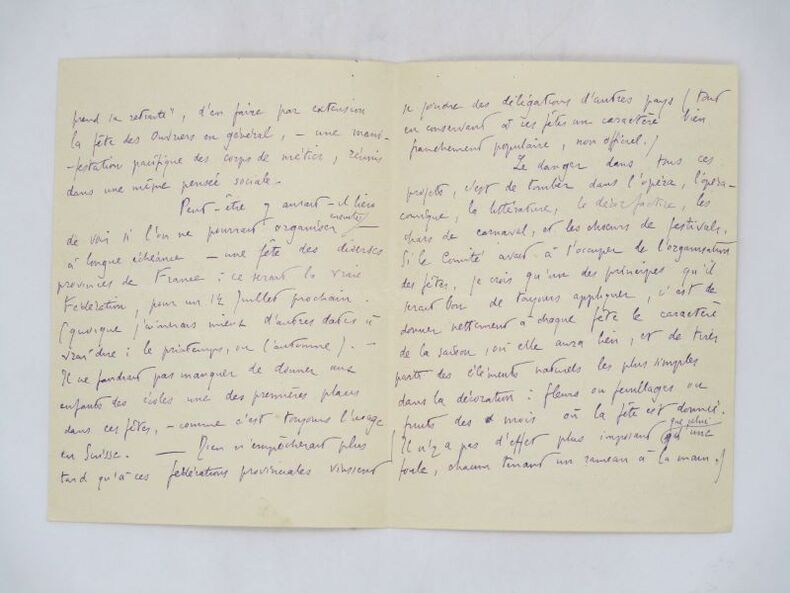 prend sa retraite", d'en faire par extension
la fête des Ouvriers en général, – une mani-
-festation pacifique des corps de métier, réunis
dans une même pensée sociale.
Peut-être y aurait-il lieu
de voir si l'on ne pourrait organiser ensuite, –
à longue échéance – une fête des diverses
provinces de France : ce serait la vraie
Fédération, pour un 14 Juillet prochain.
(quoique j'aimerais mieux d'autres dates à
vrai dire : le printemps, ou l'automne). –
Il ne faudrait pas manquer de donner aux
enfants des écoles une des premières places
dans ces fêtes, – comme c'est toujours l'usage
en Suisse. – Rien n'empêcherait plus
tard qu'à ces fédérations provinciales vinssent
se joindre des délégations d'autres pays (tout
en conservant à ces fêtes un caractère bien
franchement populaire, non officiel.)
Le danger dans tous ces
projets, c'est de tomber dans l'opéra, l'opéra-
comique, la littérature, le décor factice, les
chars de carnaval, et les chœurs de festivals.
Si le Comité avait à s'occuper de l'organisation
des fêtes, je crois qu'un des principes qu'il
serait bon de toujours appliquer, c'est de
donner nettement à chaque fête le caractère
de la saison, où elle aura lieu, et de tirer
parti des éléments naturels les plus simples
dans la décoration : fleurs ou feuillages ou
fruits des mois où la fête est donnée.
(Il n'y a pas d'effet plus imposant que celui qu'une
foule, chacun tenant un rameau à la main.)